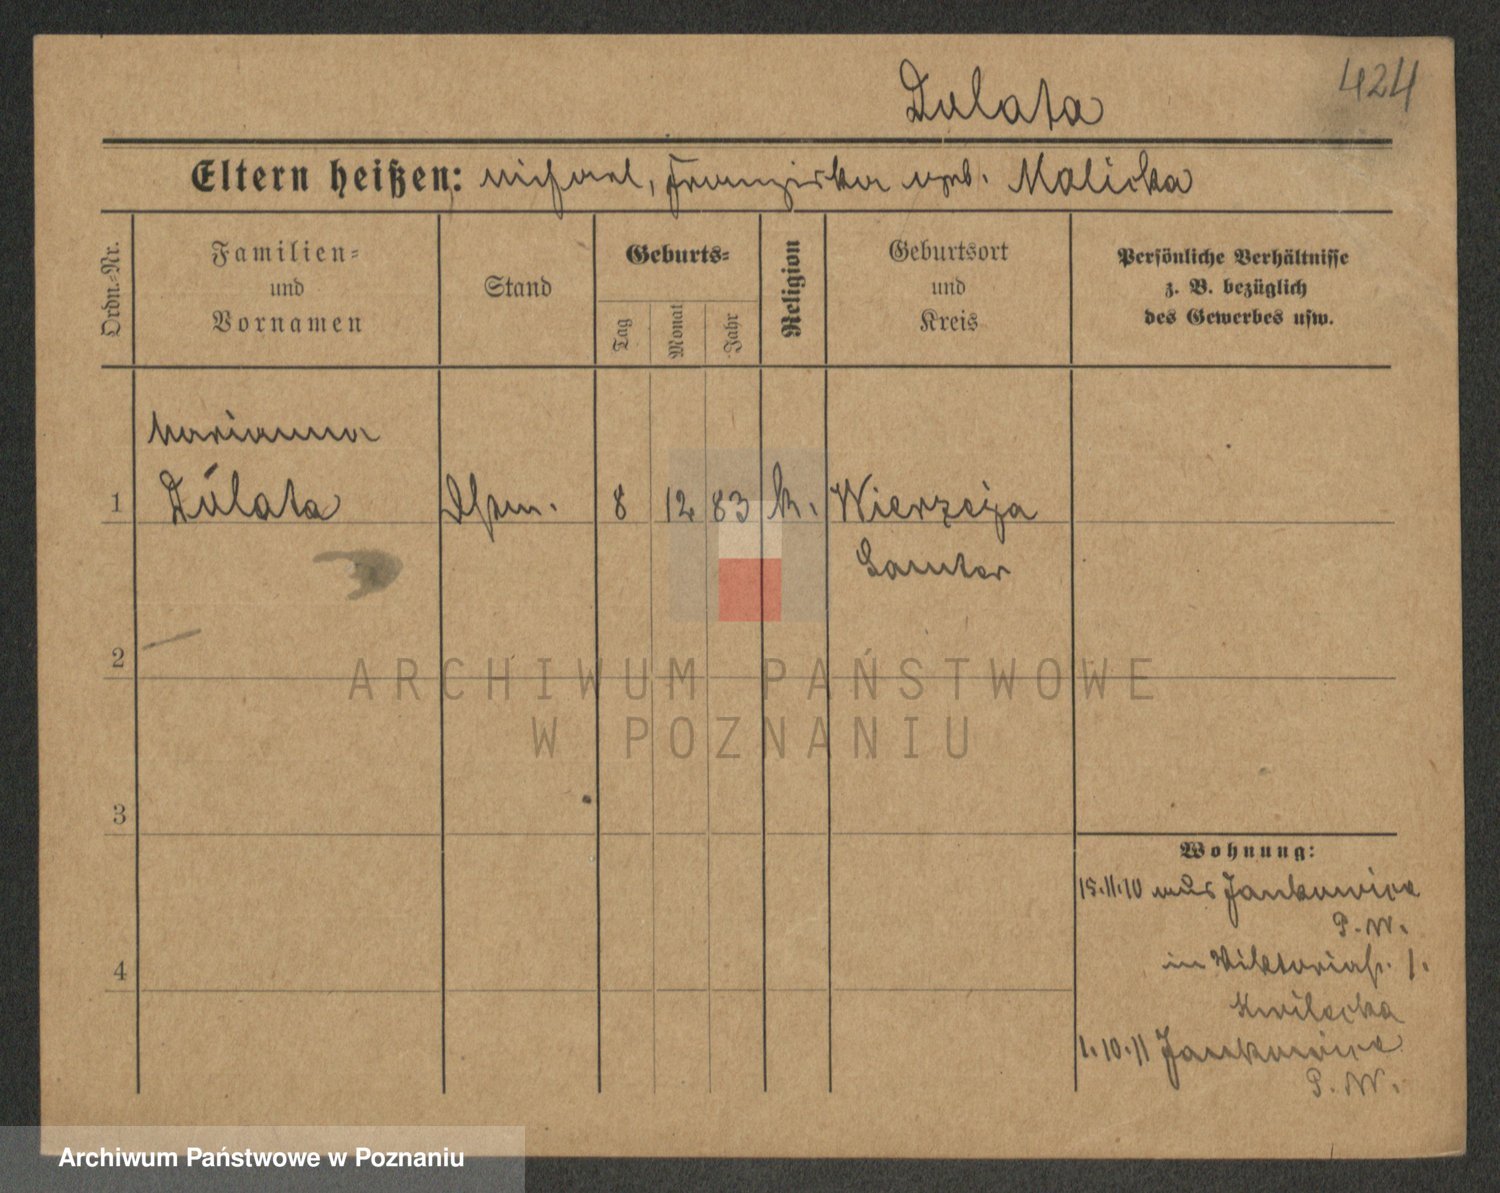 424
Dulata
Eltern heißen: Michael, Franziska geb. Malicka
Ordn.-Nr.
Familien-
und
Vornamen
Stand
Geburts-
Tag
Monat
Jahr
Religion
Geburtsort
und
Kreis
Persönliche Verhältnisse
z. B. bezüglich
des Gewerbes usw.
Marianna
1 Dúlata 8 12 83 k. Wierzeja
Samter
2
ARCHIWUM PAŃSTWOWE
W POZNANIU
3
4
Wohnung:
15.11.10 aus Jankowice
P. W.
in Viktoriastr. 1.
Kwilecka
1.10.11 Jankowice
P. W.
Archiwum Państwowe w Poznaniu